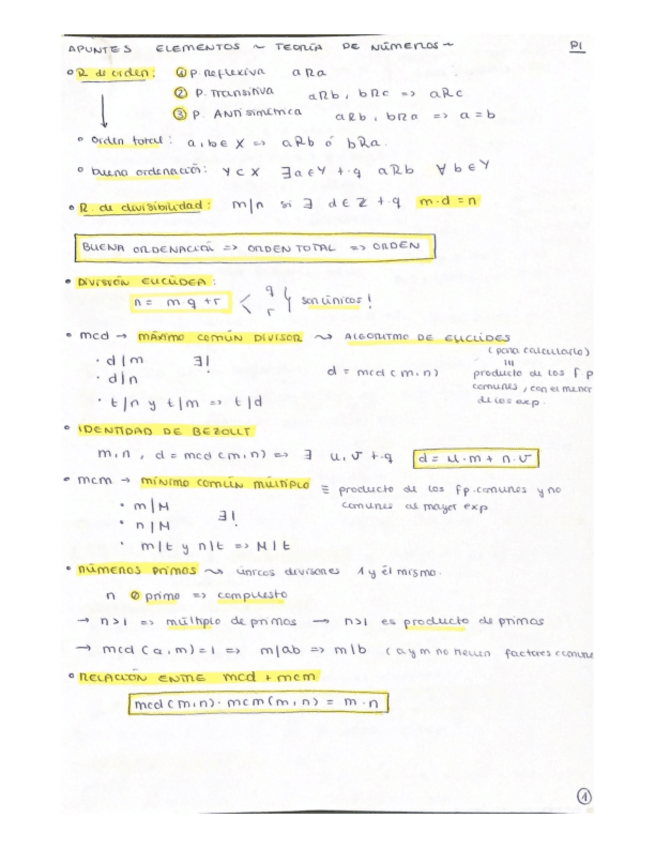 APUNTES ELEMENTOS ~ TEORÍA DE NÚMEROS ~ P1
• R. de orden: ① P. Reflexiva aRa
② P. Transitiva aRb, bRc => aRc
③ P. Antisimétrica aRb, bRa => a=b
• Orden total: a,b∈X => aRb ó bRa.
• buena ordenación: Y⊂X ∃a∈Y t.q aRb ∀b∈Y
• R. de divisibilidad: m|n si ∃ d∈Z t.q m·d=n
BUENA ORDENACIÓN => ORDEN TOTAL => ORDEN
• DIVISIÓN EUCLÍDEA:
n = m·q+r < q r } son únicos!
• mcd → MÁXIMO COMÚN DIVISOR ~> ALGORITMO DE EUCLIDES
(para calcularlo)
· d|m ∃! d = mcd(m,n) producto de los f.p
· d|n comunes, con el menor
· t|n y t|m => t|d de los exp.
• IDENTIDAD DE BEZOUT
m,n, d=mcd(m,n) => ∃ u,v t.q d = u·m + n·v
• mcm → MÍNIMO COMÚN MÚLTIPLO ≡ producto de los fp.comunes y no
· m|M comunes al mayor exp
· n|M ∃!
· m|t y n|t => M|t
• NÚMEROS PRIMOS ~> únicos divisores 1 y él mismo.
n ∅ primo => compuesto
→ n>1 => múltiplo de primos → n>1 es producto de primos
→ mcd(a,m)=1 => m|ab => m|b (a y m no tienen factores comune
• RELACIÓN ENTRE mcd + mcm
mcd(m,n)·mcm(m,n) = m·n
①